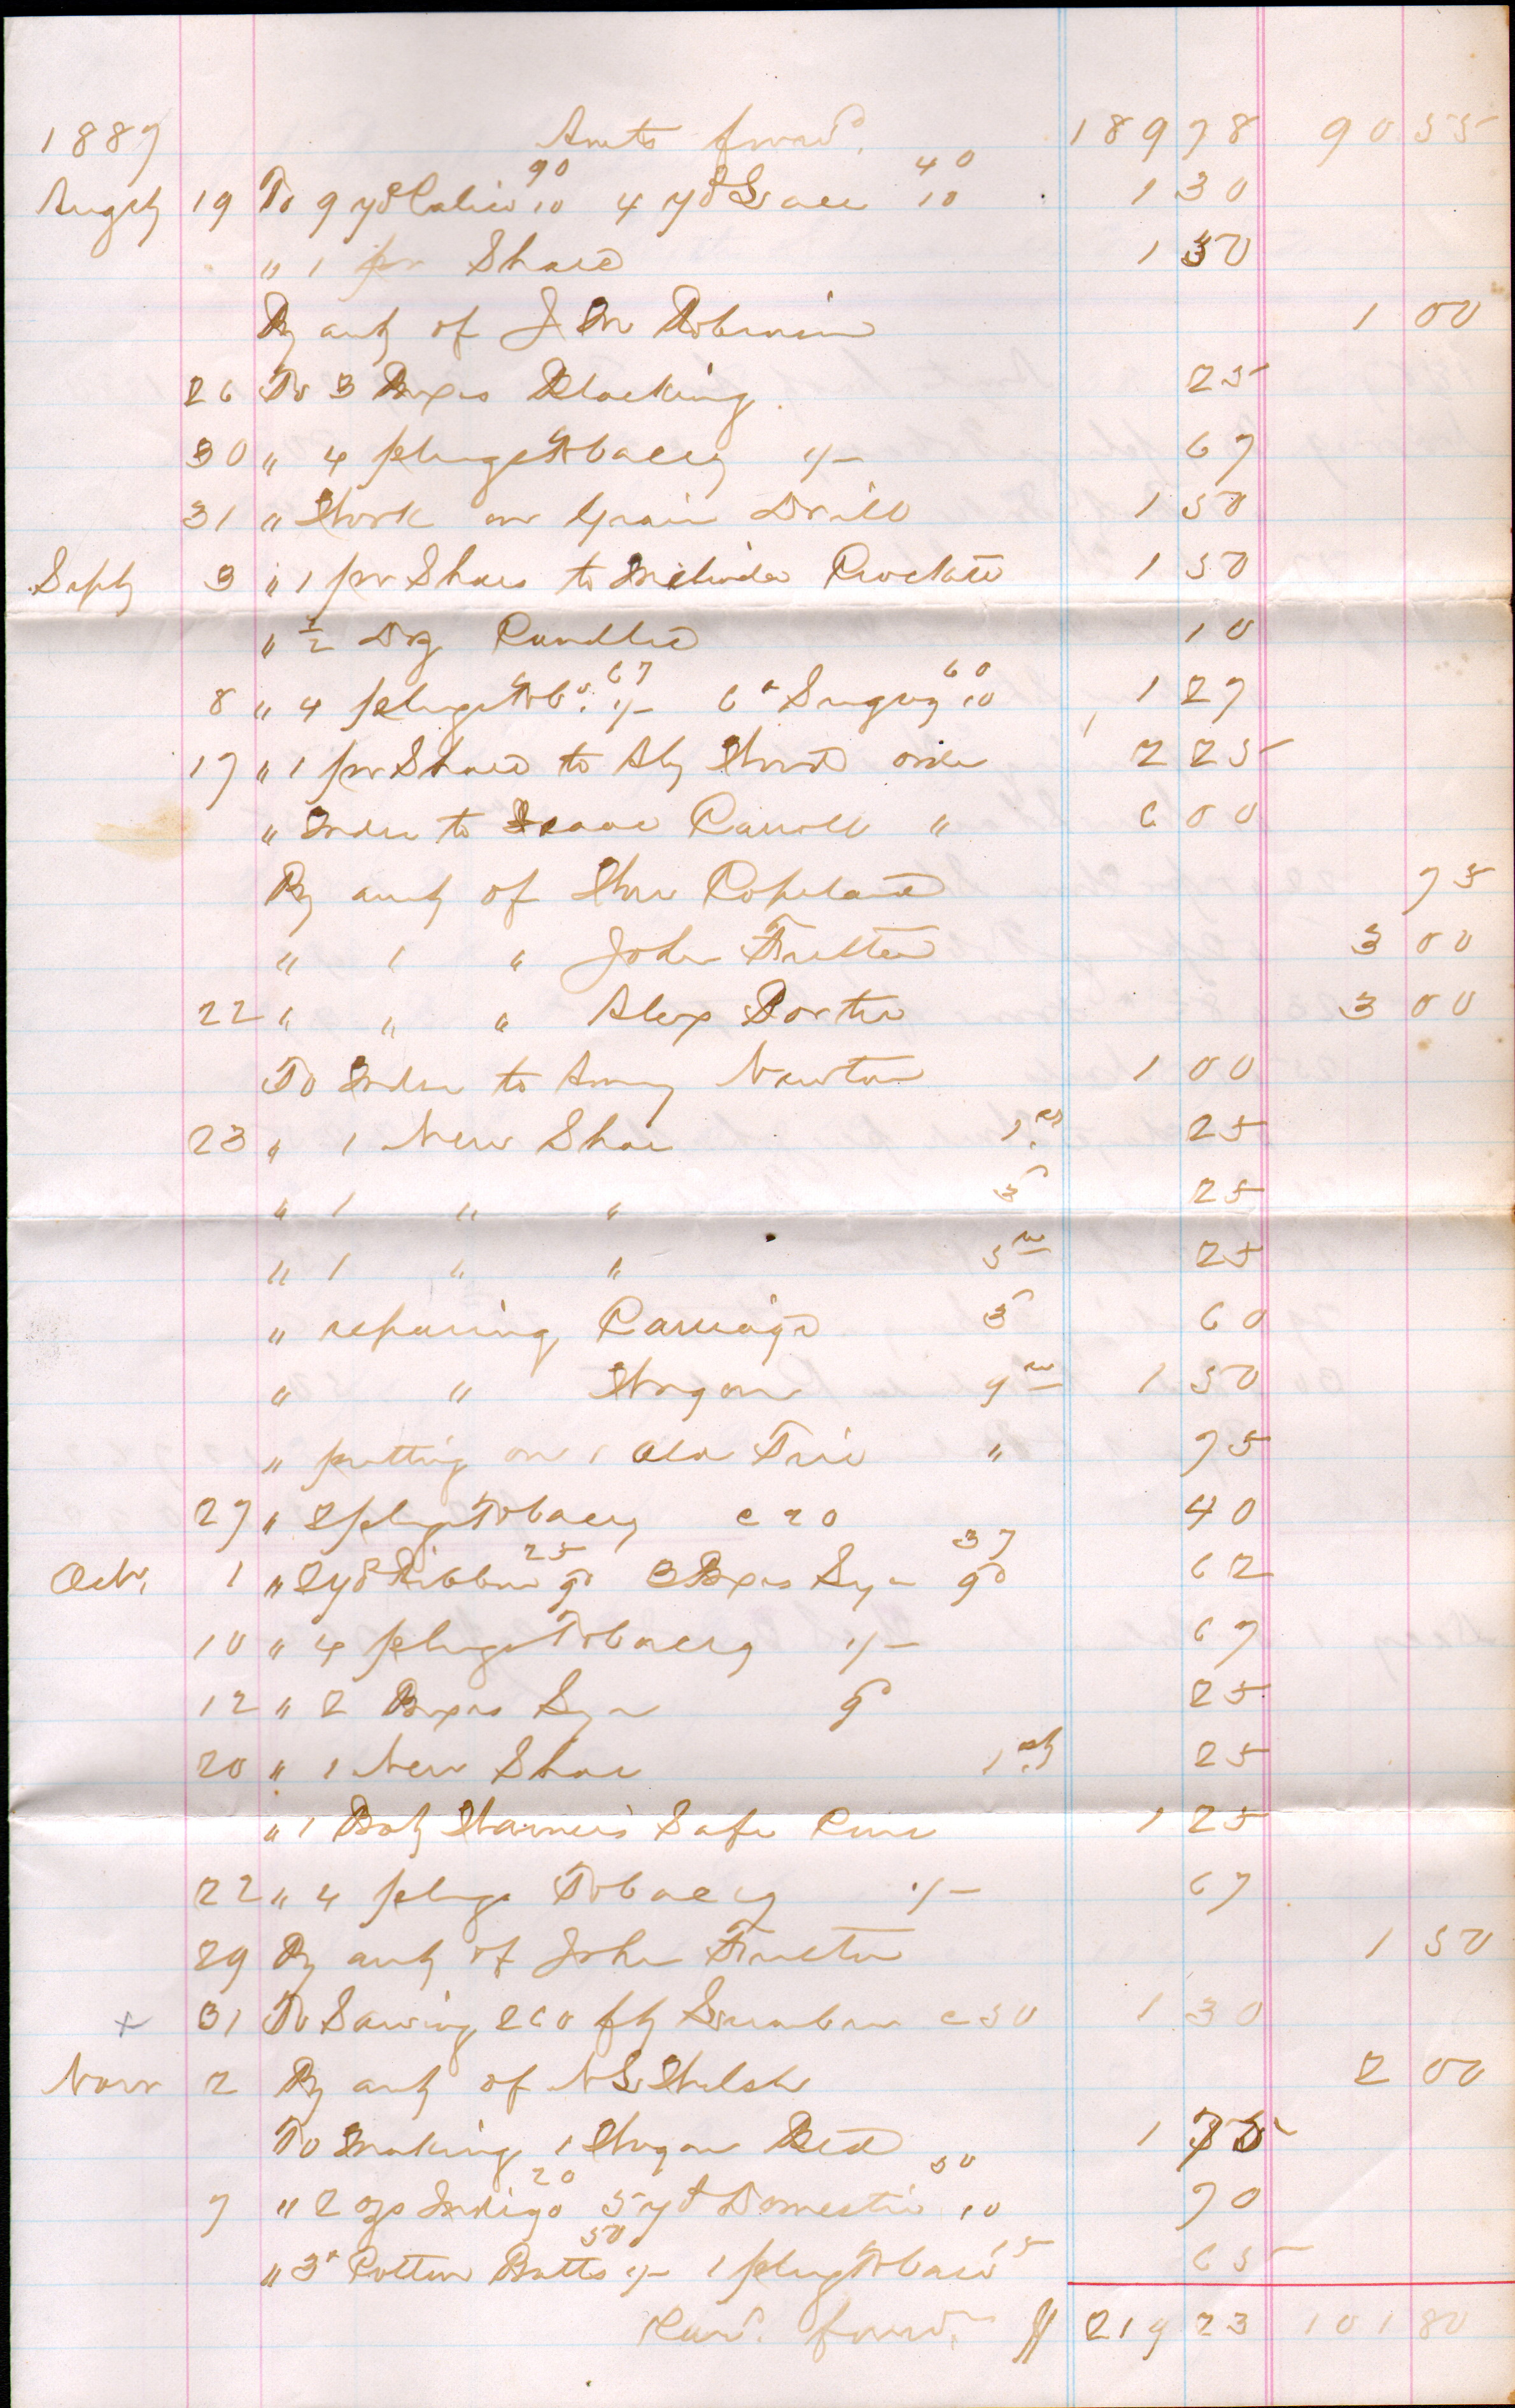 1887 Amts forwd. 189 78 90 55
Augst 19 To 9 yds Calico 10 90 4 yds Lace 10 40 1 30
" 1 pr Shoes 1 50
By amt of J M Robinson 1 00
26 To 3 Boxes Blacking 25
30 " 4 plugs Tobaccy 1/- 67
31 " Work on Grain Drill 1 50
Septy 3 " 1 pr Shoes to Melinda Crockett 1 50
" 1/2 Doz Candles 10
8 " 4 plugs Tobo. 1/- 67 6 # Sugar 10 60 1 27
17 " 1 pr Shoes to Aly Wood order 2 25
" Order to Isaac Carroll " 6 00
By amt of Wm Copeland 75
" " " John Trutter 3 00
22 " " " Alex Porter 3 00
To Order to Amy Newton 1 00
23 " 1 New Shoe 1st 25
" 1 " " 3d 25
" 1 " " 5th 25
" repairing Carriage 3d 60
" " Wagon 9th 1 50
" putting on 1 Old Tire " 75
27 " 2 plugs Tobaccy c 20 40
Octr. 1 " 2 yds Ribbon 9d 25 3 Boxes Dye 9d 37 62
10 " 4 plugs Tobaccy 1/- 67
12 " 2 Boxes Dye 9d 25
20 " 1 New Shoe 1st 25
" 1 Botl Warner's Safe Cure 1 25
22 " 4 plugs Tobaccy 1/- 67
29 By amt of John Trutter 1 50
x 31 To Sawing 260 ft Lumber c 50 1 30
Novr 2 By amt of N L Welsh 2 00
To Making 1 Wagon Bed 1 75
7 " 2 ozs Indigo 20 5 yds Domestic 10 50 70
" 3 # Cotton Batts 1/- 50 1 plug Tobaco 15 65
Card. forwd. $ 219 23 101 80